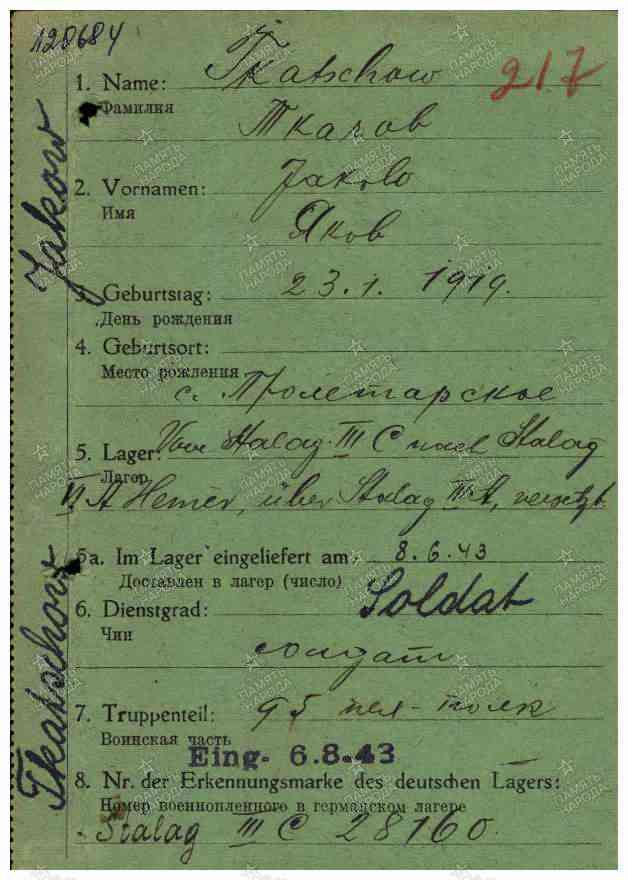 128684
217
1. Name: Tkatschow
Фамилия
Ткачов
2. Vornamen: Jakow
Имя
Яков
3. Geburtstag: 23.1.1919.
День рождения
4. Geburtsort:
Место рождения
с. Пролетарское
5. Lager: Vom Stalag III C nach Stalag
Лагер
VI A Hemer, über Stalag III A, versetzt.
5a. Im Lager eingeliefert am: 8.6.43
Доставлен в лагер (число)
6. Dienstgrad: Soldat
Чин
солдат
7. Truppenteil: 95 полк
Воинская часть
Eing. 6.8.43
8. Nr. der Erkennungsmarke des deutschen Lagers:
Номер военнопленного в германском лагере
Stalag III C 28160.
Jakow
Tkatschow
ПАМЯТЬ НАРОДА